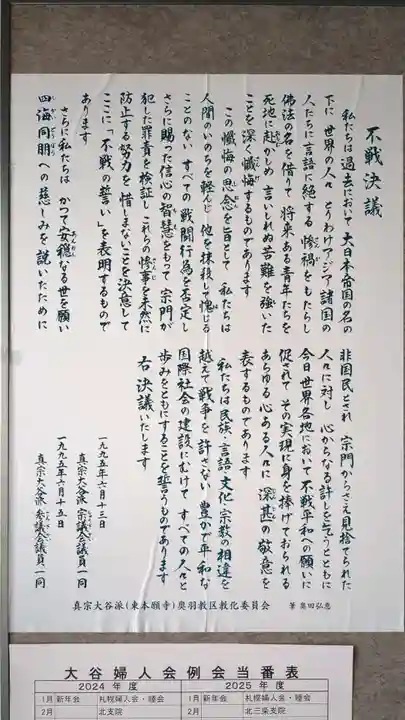 不戦決議
私たちは過去において 大日本帝国の名の
下に 世界の人々 とりわけアジア諸国の
人たちに言語に絶する惨禍をもたらし
佛法の名を借りて 将来ある青年たちを
死地に赴かしめ 言いしれぬ苦難を強いた
ことを深く懺悔するものであります
この懺悔の思念を旨として 私たちは
人間のいのちを軽んじ 他を抹殺して愧じる
ことのない すべての戦闘行為を否定し
さらに賜った信心の智慧をもって 宗門が
犯した罪責を検証し これらの惨事を未然に
防止する努力を惜しまないことを決意して
ここに 「不戦の誓い」を表明するもので
あります
さらに私たちは かつて安穏なる世を願い
四海同朋への慈しみを説いたために
非国民とされ 宗門からさえ見捨てられた
人々に対し 心からなる許しを乞うとともに
今日世界各地において不戦平和への願いに
促されて その実現に身を捧げておられる
あらゆる心ある人々に 深甚の敬意を
表するものであります
私たちは民族・言語・文化・宗教の相違を
越えて戦争を許さない 豊かで平和な
国際社会の建設にむけて すべての人々と
歩みをともにすることを誓うものであります
右 決議いたします
一九九五年六月十三日
真宗大谷派 宗議会議員一同
一九九五年六月十五日
真宗大谷派 参議会議員一同
真宗大谷派(東本願寺)奥羽教区教化委員会 筆 奥田弘恵
大谷婦人会例会当番表
2024 年度 2025 年度
1月 新年会 札幌婦人会・睦会 1月 新年会 札幌婦人会・睦会
2月 北支院 2月 北三条支院